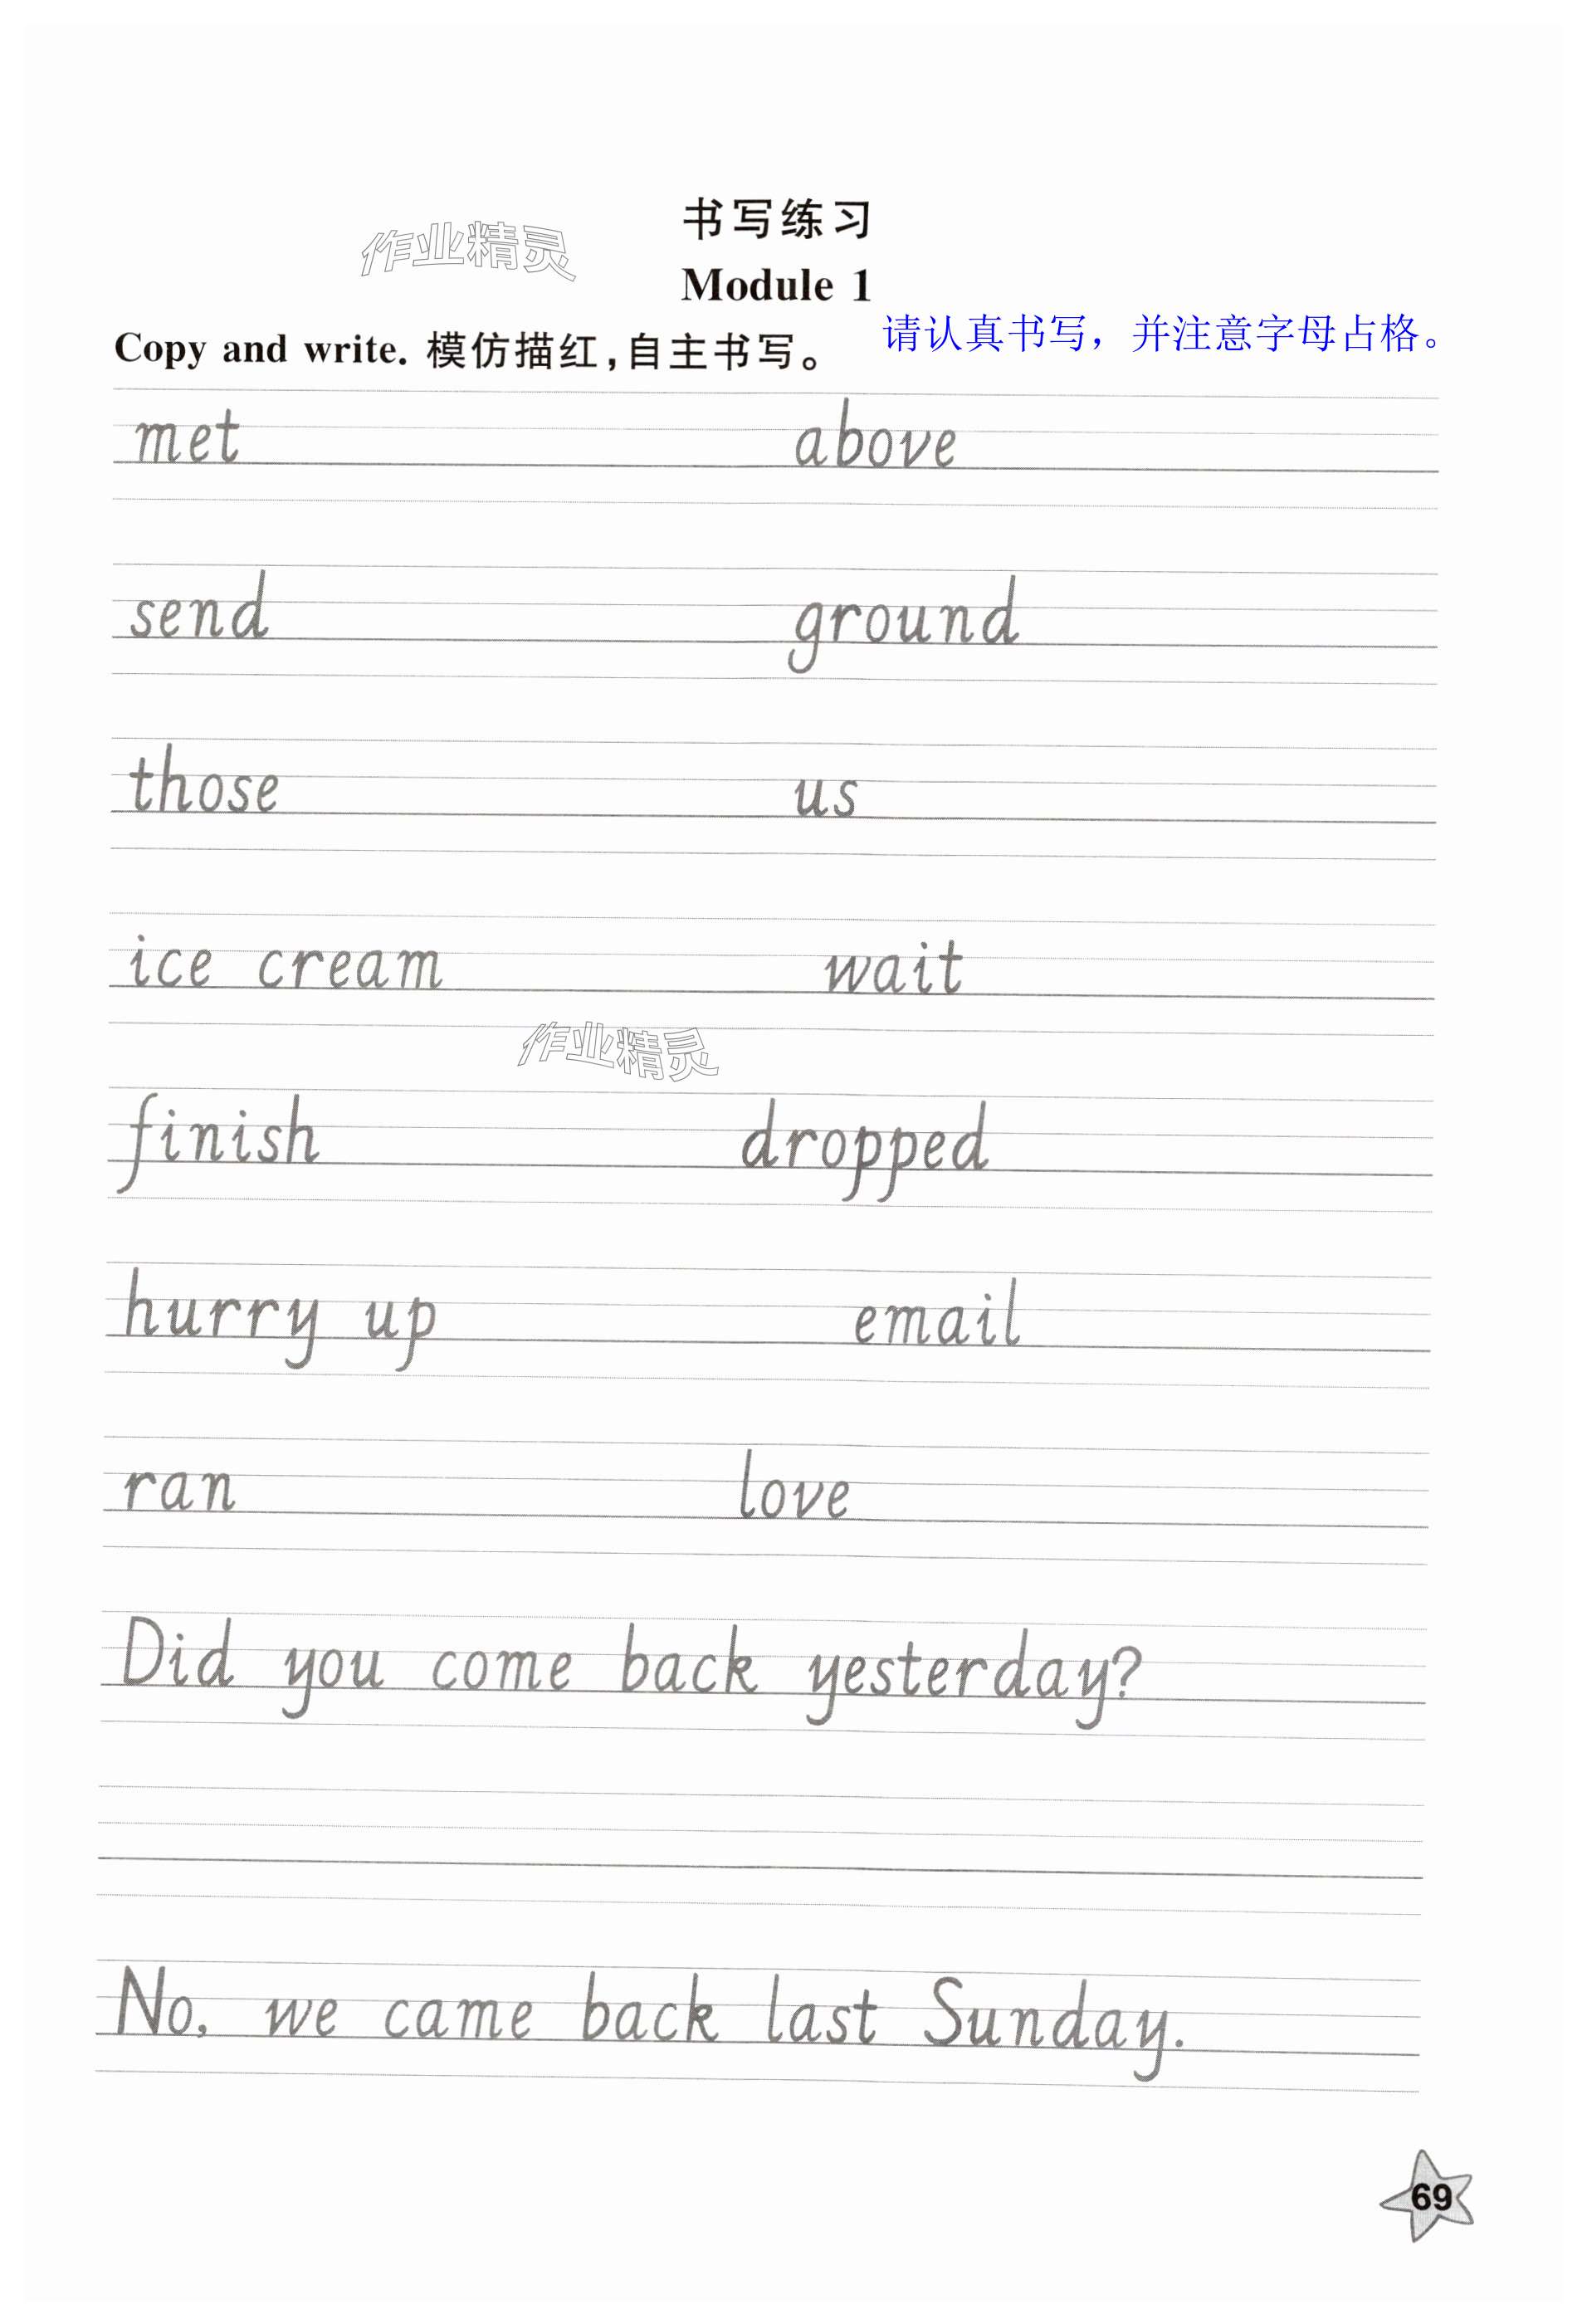 书写练习
作业精灵
Module 1
Copy and write. 模仿描红,自主书写。 请认真书写，并注意字母占格。
met above
send ground
those us
ice cream wait
作业精灵
finish dropped
hurry up email
ran love
Did you come back yesterday?
No, we came back last Sunday.
69